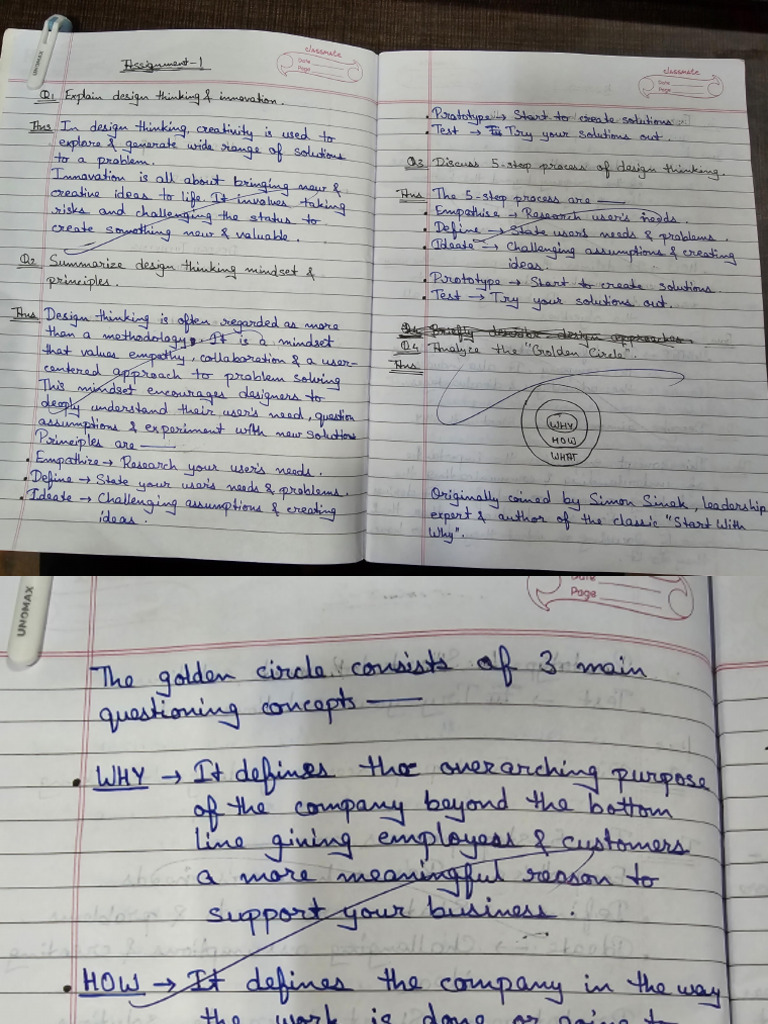 UNOMAX
Assignment-1
classmate
Date
Page
Q1 Explain design thinking & innovation.
Ans In design thinking, creativity is used to
explore & generate wide range of solutions
to a problem.
Innovation is all about bringing new &
creative ideas to life. It involves taking
risks and challenging the status to
create something new & valuable.
Q2 Summarize design thinking mindset &
principles.
Ans Design thinking is often regarded as more
than a methodology. It is a mindset
that values empathy, collaboration & a user-
centered approach to problem solving
This mindset encourages designers to
deeply understand their user's need, question
assumptions & experiment with new solutions
Principles are —
• Empathize → Research your user's needs.
• Define → State your user's needs & problems.
• Ideate → Challenging assumptions & creating
ideas.
classmate
Date
Page
• Prototype → Start to create solutions.
• Test → Try your solutions out.
Q3 Discuss 5-step process of design thinking.
Ans The 5-step process are —
• Empathise → Research user's needs.
• Define → State user's needs & problems.
• Ideate → Challenging assumptions & creating
ideas.
• Prototype → Start to create solutions.
• Test → Try your solutions out.
Q4 Briefly describe design approaches.
Q4 Analyze the "Golden Circle".
Ans
WHY
HOW
WHAT
Originally coined by Simon Sinek, leadership
expert & author of the classic "Start With
Why".
UNOMAX
Date
Page
The golden circle consists of 3 main
questioning concepts —
• WHY → It defines the overarching purpose
of the company beyond the bottom
line giving employees & customers
a more meaningful reason to
support your business.
• HOW → It defines the company in the way
the work is done or going to